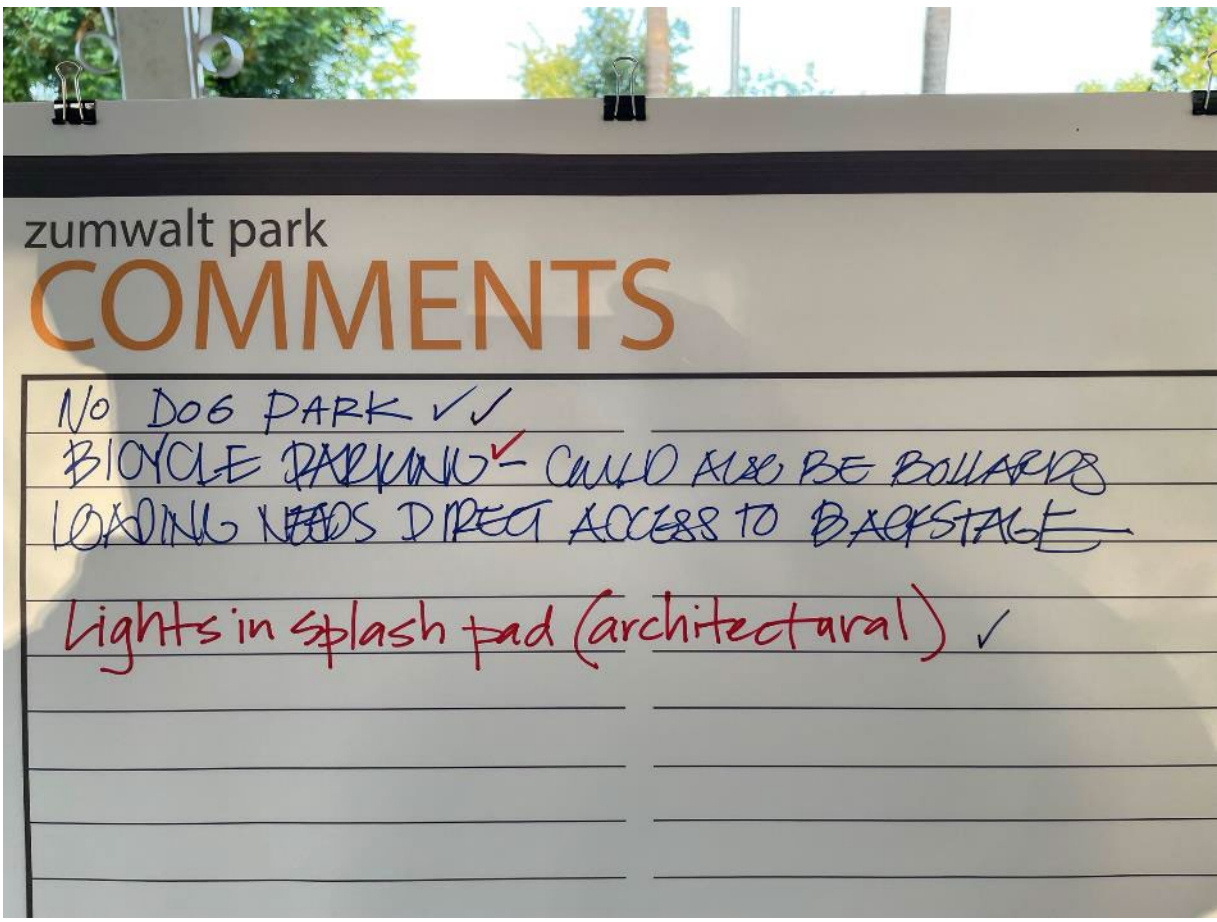 zumwalt park
COMMENTS
NO DOG PARK ✓✓
BICYCLE PARKING ✓ - COULD ALSO BE BOLLARDS
LOADING NEEDS DIRECT ACCESS TO BACKSTAGE
Lights in splash pad (architectural) ✓